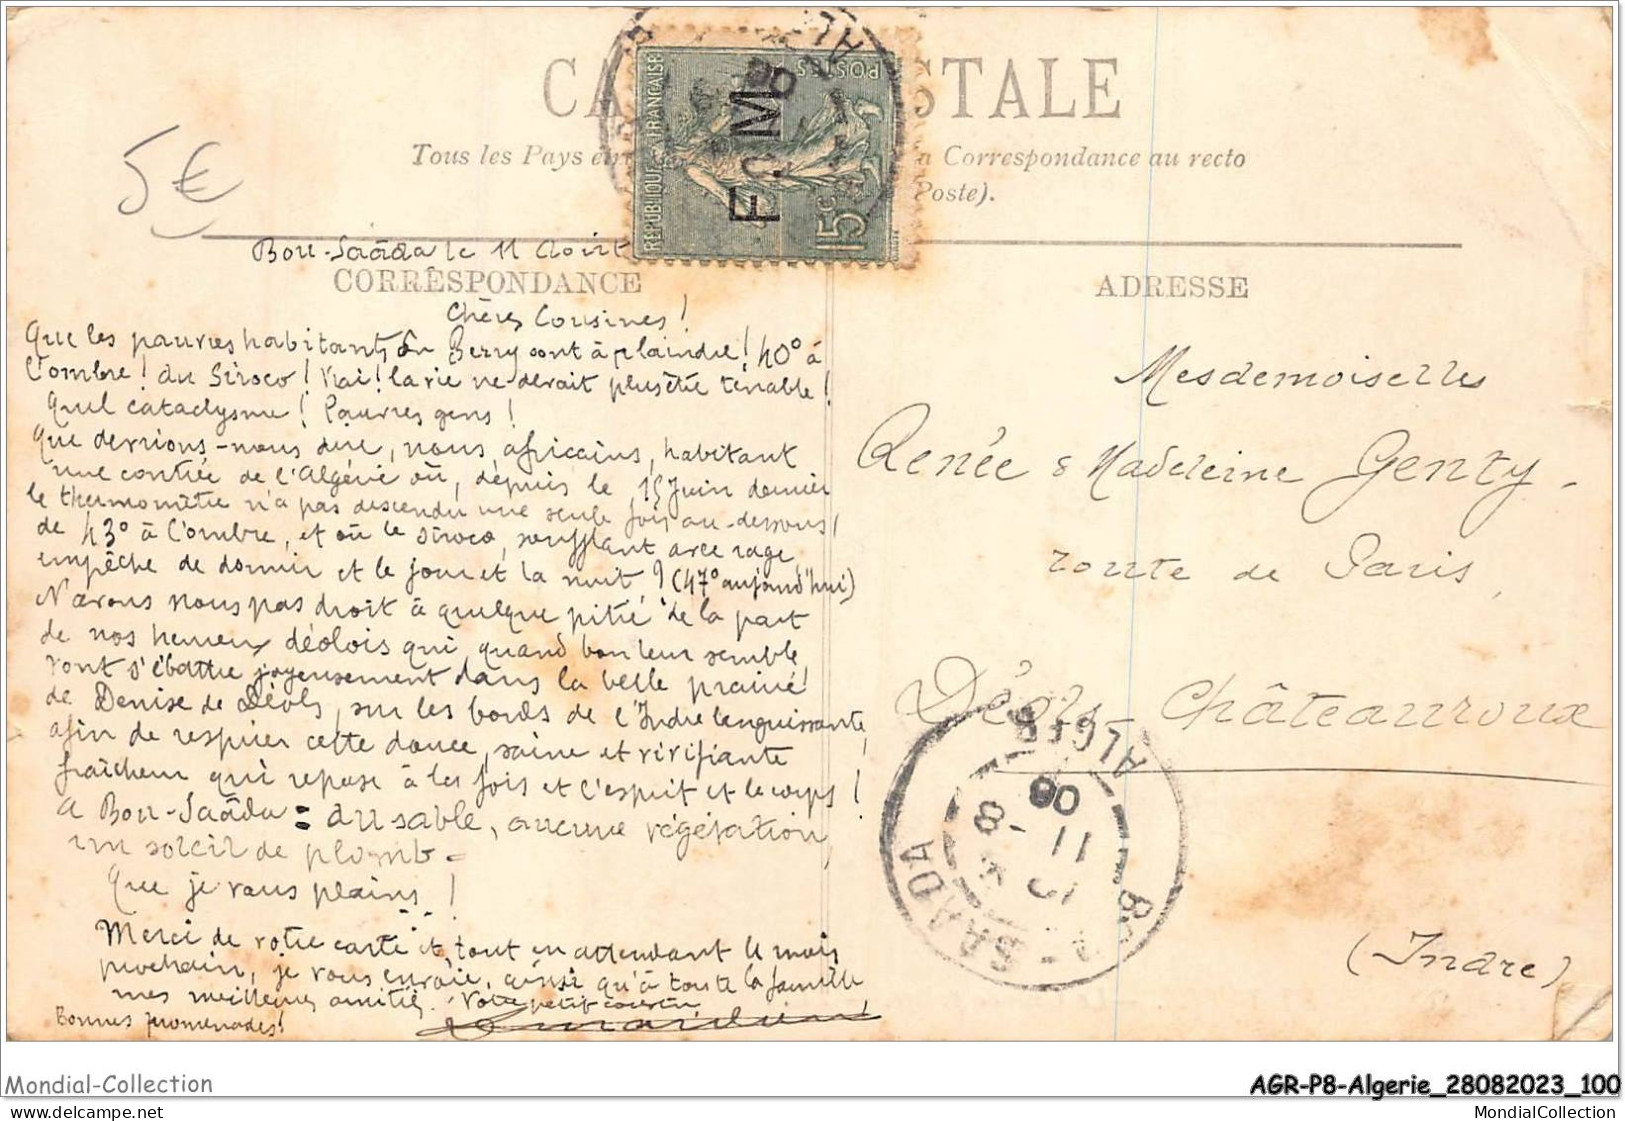 CA STALE
Tous les Pays e Correspondance au recto
Poste).
5€
REPUBLIQUE FRANÇAISE
POSTES
15c
F M
Bou-Saâda, le 11 Août
CORRESPONDANCE
ADRESSE
Chères Cousines!
Que les pauvres habitants du Berry sont à plaindre! 40° à
l'ombre! du Siroco! Vrai! la vie ne devait plus être tenable!
Quel cataclysme! Pauvres gens!
Que devrions-nous dire, nous africains, habitant
une contrée de l'Algérie où, depuis le 15 Juin dernier
le thermomètre n'a pas descendu une seule fois au-dessous
de 43° à l'ombre, et où le siroco, soufflant avec rage,
empêche de dormir et le jour et la nuit! (47° aujourd'hui)
N'avons nous pas droit à quelque pitié de la part
de nos heureux déolois qui, quand bon leur semble,
vont s'ébattre joyeusement dans la belle prairie
de Denise de Déols, sur les bords de l'Indre languissante,
afin de respirer cette douce, saine et vivifiante
fraîcheur qui repose à la fois et l'esprit et le corps!
A Bou-Saâda: du sable, aucune végétation,
un soleil de plomb.
Que je vous plains!
Merci de votre carte et, tout en attendant le mois
prochain, je vous envoie, ainsi qu'à toute la famille
mes meilleures amitiés. Votre petit cousin,
Bonnes promenades!
Mesdemoiselles
Renée & Madeleine Genty
route de Paris,
Déols Châteauroux
(Indre)
SAADA
ALGER
11 -8
08
Mondial-Collection
AGR-P8-Algerie_28082023_100
MondialCollection